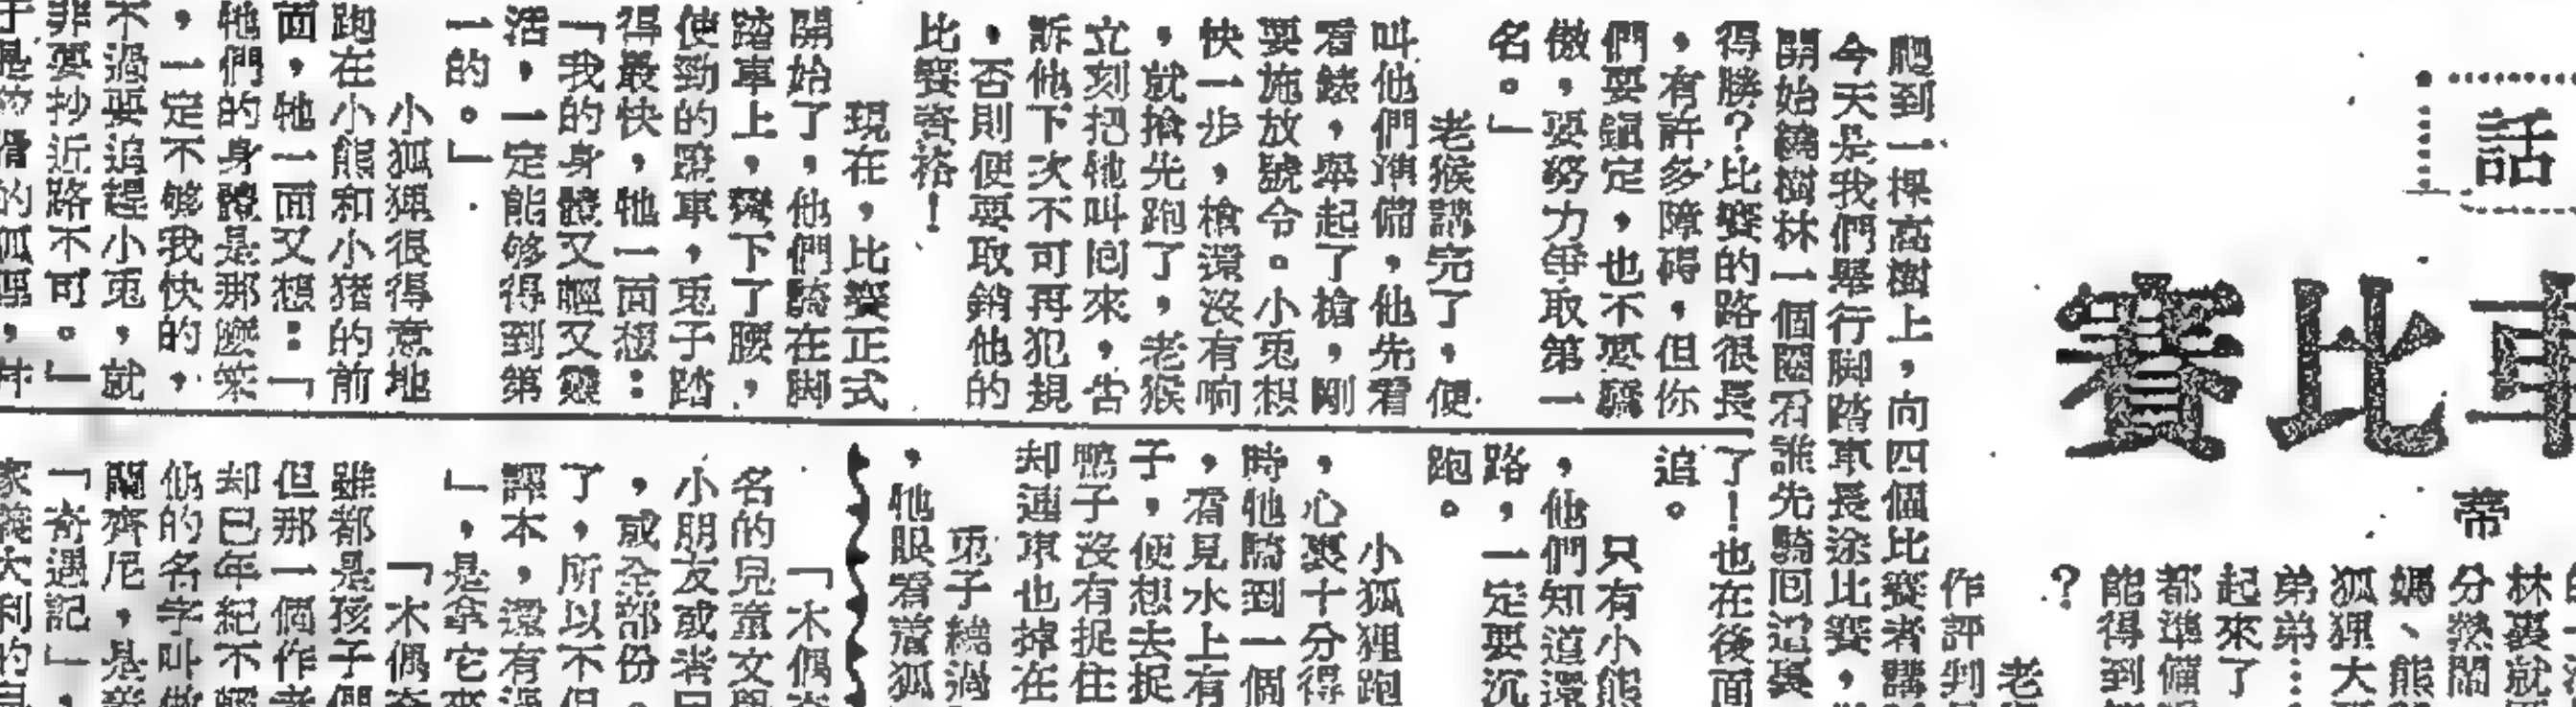 話
車比賽
蒂
林裏就
分熱鬧
媽、熊
狐狸大
弟弟……
起來了
都準備
能得到
？
老
作評判
爬到一棵高樹上，向四個比賽者講
今天是我們舉行脚踏車長途比賽，
開始繞樹林一個圈看誰先騎囘這裏
得勝？比賽的路很長
，有許多障碍，但你
們要鎮定，也不要驕
傲，要努力爭取第一
名。」
老猴講完了，便
叫他們準備，他先看
看錶，舉起了槍，剛
要施放號令。小兎想
快一步，槍還沒有响
，就搶先跑了，老猴
立刻把牠叫囘來，告
訴他下次不可再犯規
，否則便要取銷他的
比賽資格！
現在，比賽正式
開始了，他們騎在脚
踏車上，彎下了腰，
使勁的蹬車，兎子踏
得最快，牠一面想：
「我的身體又輕又靈
活，一定能够得到第
一的。」
小狐狸很得意地
跑在小熊和小猪的前
面，牠一面又想：「
牠們的身體是那麽笨
，一定不够我快的，
不過要追趕小兎，就
非要抄近路不可。」
于是狡猾的狐狸，幷
了！也在後面
追。
只有小熊
，他們知道還
路，一定要沉
跑。
小狐狸跑
，心裏十分得
時牠騎到一個
，看見水上有
子，便想去捉
鴨子沒有捉住
却連車也掉在
兎子繞過
，牠眼看着狐
「木偶奇
名的兒童文學
小朋友或者已
，或全部份。
了，所以不但
譯本，還有過
」，是拿它來
「木偶奇
雖都是孩子們
但那一個作者
却已年紀不輕
他的名字叫做
關齊尼，是意
「奇遇記」，
家義大利的